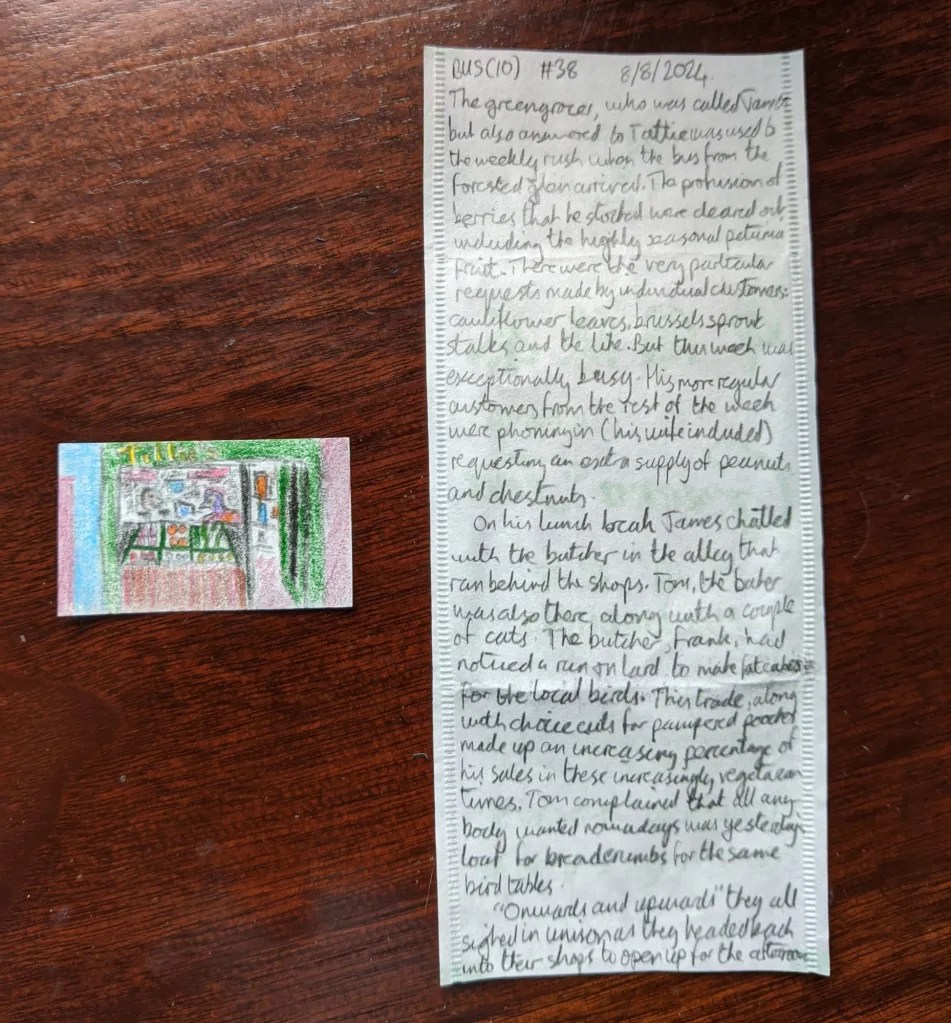 Tattie's
BUS(10) #38 8/8/2024
The greengrocer, who was called James
but also answered to Tattie was used to
the weekly rush when the bus from the
forested glen arrived. The profusion of
berries that he stocked were cleared out,
including the highly seasonal petunia
fruit. There were the very particular
requests made by individual customers:
cauliflower leaves, brussels sprout
stalks and the like. But this week was
exceptionally busy. His more regular
customers from the rest of the week
were phoning in (his wife included)
requesting an extra supply of peanuts
and chestnuts.
On his lunch break James chatted
with the butcher in the alley that
ran behind the shops. Tom, the baker
was also there, along with a couple
of cats. The butcher, Frank, had
noticed a run on lard to make fat cakes
for the local birds. This trade, along
with choice cuts for pampered pooches
made up an increasing percentage of
his sales in these increasingly vegetarian
times. Tom complained that all any
body wanted nowadays was yesterday
loaf for breadcrumbs for the same
bird tables.
"Onwards and upwards" they all
sighed in unison as they headed back
into their shops to open up for the afternoon